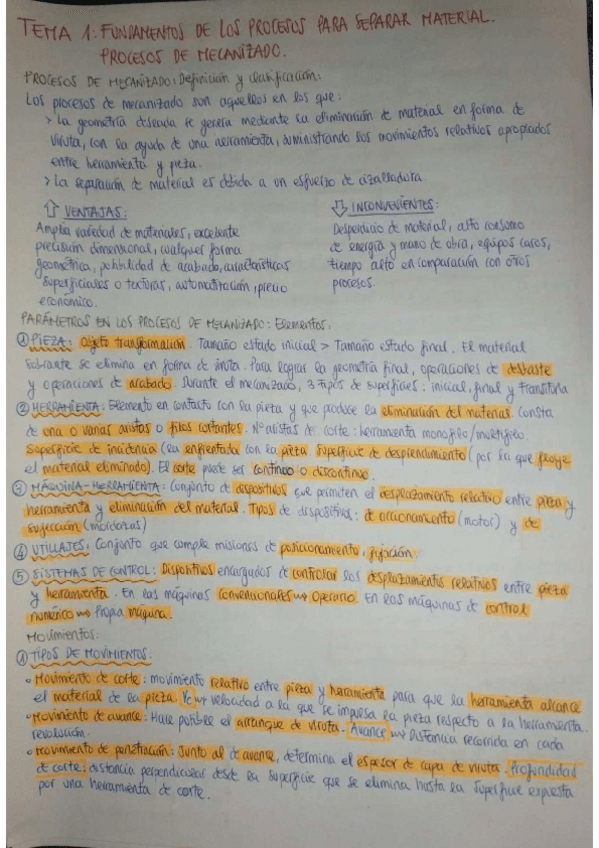 TEMA 1: FUNDAMENTOS DE LOS PROCESOS PARA SEPARAR MATERIAL.
PROCESOS DE MECANIZADO.
PROCESOS DE MECANIZADO: Definición y clasificación:
Los procesos de mecanizado son aquellos en los que:
> La geometría deseada se genera mediante la eliminación de material en forma de
viruta, con la ayuda de una herramienta, suministrando los movimientos relativos apropiados
entre herramienta y pieza.
> La separación de material es debida a un esfuerzo de cizalladura.
⇧ VENTAJAS:
Amplia variedad de materiales, excelente
precisión dimensional, cualquier forma
geométrica, posibilidad de acabado, características
superficiales o texturas, automatización, precio
económico.
⇩ INCONVENIENTES:
Desperdicio de material, alto consumo
de energía y mano de obra, equipos caros,
tiempo alto en comparación con otros
procesos.
PARÁMETROS EN LOS PROCESOS DE MECANIZADO: Elementos.
① PIEZA: Objeto transformación. Tamaño estado inicial > Tamaño estado final. El material
sobrante se elimina en forma de viruta. Para lograr la geometría final, operaciones de desbaste
y operaciones de acabado. Durante el mecanizado, 3 tipos de superficies: inicial, final y transitoria
② HERRAMIENTA: Elemento en contacto con la pieza y que produce la eliminación del material. Consta
de una o varias aristas o filos cortantes. Nº aristas de corte: herramienta monofilo/multifilo.
Superficie de incidencia (la enfrentada con la pieza) superficie de desprendimiento (por la que fluye
el material eliminado). El corte puede ser continuo o discontinuo.
③ MÁQUINA-HERRAMIENTA: Conjunto de dispositivos que permiten el desplazamiento relativo entre pieza y
herramienta y eliminación del material. Tipos de dispositivos: de accionamiento (motor) y de
sujección (mordazas)
④ UTILLAJES: Conjunto que cumple misiones de posicionamiento, fijación.
⑤ SISTEMAS DE CONTROL: Dispositivos encargados de controlar los desplazamientos relativos entre pieza
y herramienta. En las máquinas convencionales → Operario. En las máquinas de control
numérico → Propia máquina.
Movimientos:
① TIPOS DE MOVIMIENTOS:
• Movimiento de corte: movimiento relativo entre pieza y herramienta para que la herramienta alcance
el material de la pieza. Vc → velocidad a la que se impulsa la pieza respecto a la herramienta.
• Movimiento de avance: Hace posible el arranque de viruta. Avance → Distancia recorrida en cada
revolución.
• Movimiento de penetración: Junto al de avance, determina el espesor de capa de viruta. Profundidad
de corte: distancia perpendicular desde la superficie que se elimina hasta la superficie expuesta
por una herramienta de corte.